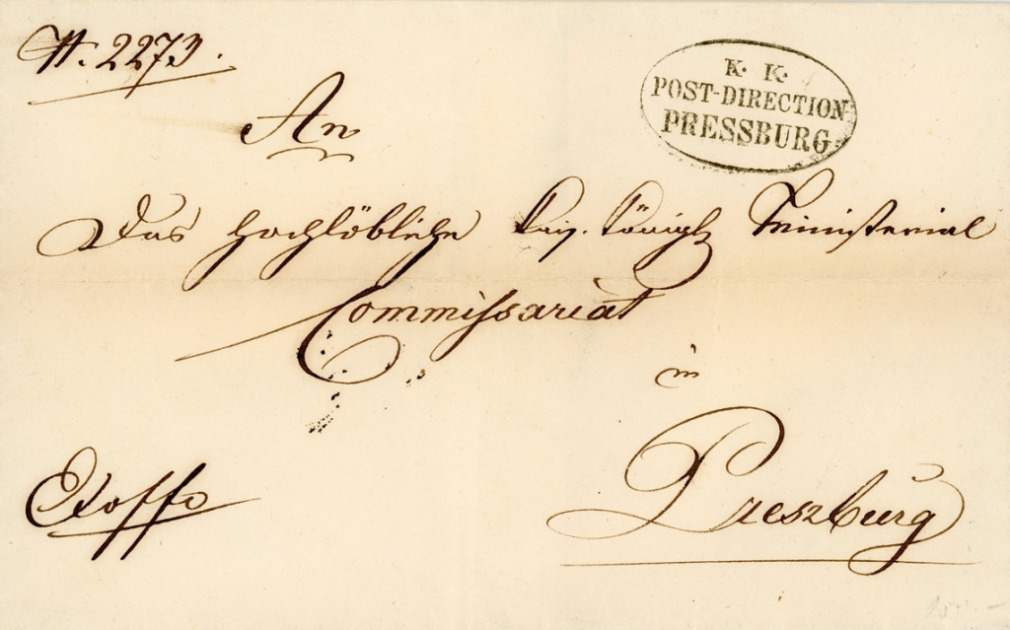 N. 2273.
K. K.
POST-DIRECTION
PRESSBURG
An
Das hochlöbliche kais. königl. Ministerial
Commissariat
in
Preszburg